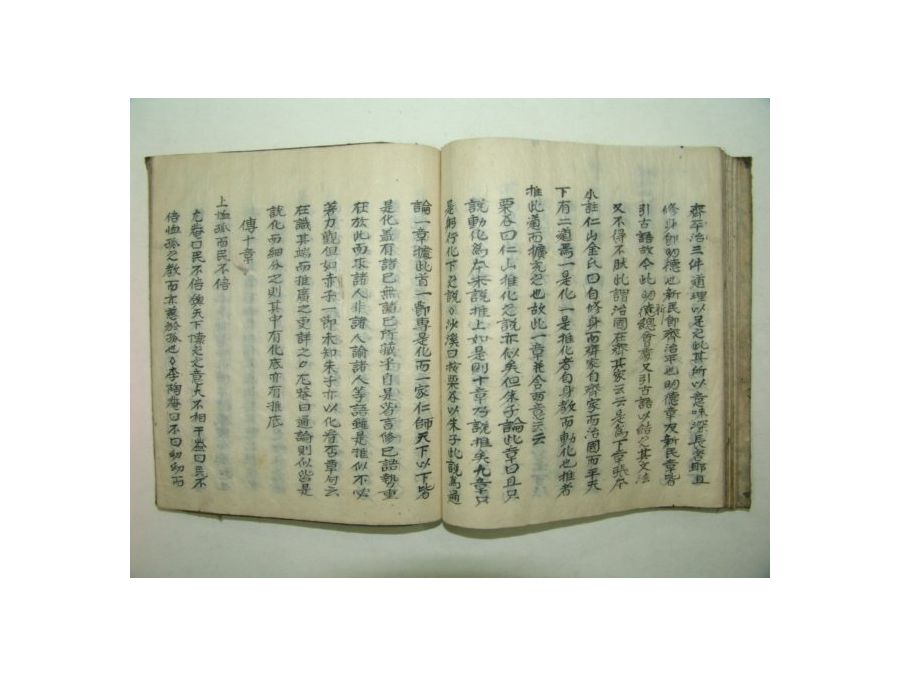 齊平治三件道理以足之此其所以意味深長者耶且
修身卽明德也新民卽齊治平也明德章及新民章皆
引古語故今此明德新總會章又引古語以結之其文法
又不得不肰此謂治國在齊其家云云是爲下章張本
小註仁山金氏曰自修身而齊家自齊家而治國而平天
下有二道焉一是化一是推化者自身敎而動化也推者
推此道而擴充之也故此一章兼含兩意云云
栗谷曰仁山推化之說亦似矣但朱子論此章曰且只
說動化爲本未說推上如是則十章乃說推矣九章只
是躬行化下之說○沙溪曰按栗谷以朱子此說爲通
論一章據此首一節專是化而一家仁師天下以下皆
是化盖有諸己無諸己所藏乎自是皆言修己語勢重
在於此而求諸人非諸人諭諸人等語雖是推似不必
著力觀但如赤子一節未知朱子亦以化看否章句云
在識其端而推廣之更詳之○尤菴曰通論則似皆是
說化而細分之則其中有化底亦有推底
傳十章
上恤孤而民不倍
尤菴曰民不倍
倍恤孤之敎而亦慈於孤也○李陶菴曰不曰幼幼而